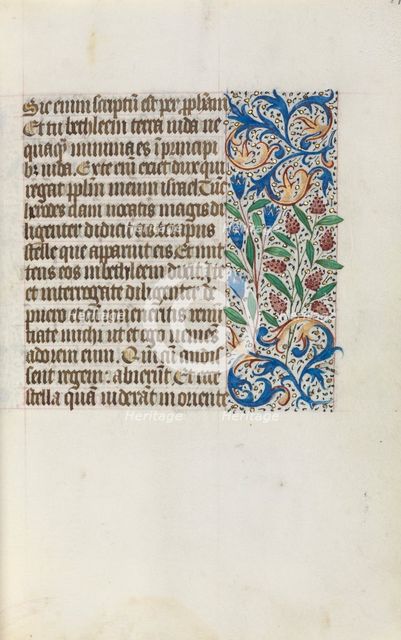 Sic enim scriptū est per ꝓphām
Et tu bethleem terra iuda ne
quaꝗ minima es ī principi
bꝫ iuda. Ex te enī exiet dux qui
regat pplm meum israel. Tūc
herodes clam uocatis magis di
ligenter didicit ab eis tempus
stelle que apparuit eis. Et mit
tens eos in bethleem dixit. Ite
et interrogate diligenter de
puero et cum inueneritis renū
tiate michi ut et ego ueniens
adorem eum. Qui cū audis
sent regem abierūt. Et ecce
stella quā uiderāt in oriente
Heritage Heritage